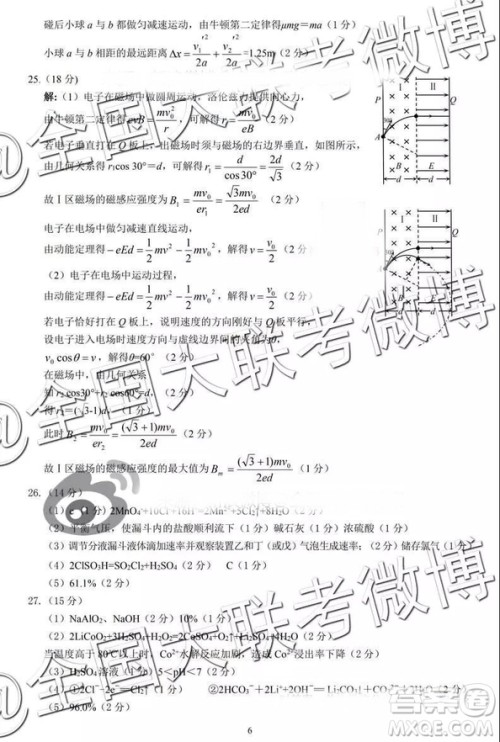 碰后小球 a 与 b 都做匀减速运动，由牛顿第二定律得μmg=ma（1 分）
小球 a 与 b 相距的最远距离 Δx=v₁'²/2a+v₂'²/2a=1.25m（2 分）
25.（18 分）
解:（1）电子在磁场中做圆周运动，洛伦兹力提供向心力，
由牛顿第二定律得 evB=mv₀²/r，可解得 r=mv₀/eB（2 分）
若电子垂直打在 Q 板上，出磁场时须与磁场的右边界垂直，如图所示。
由几何关系得 r₁cos 30°=d，可解得 r₁=d/cos30°=2d/√3（2 分）
故Ⅰ区磁场的磁感应强度 B₁=mv₀/er₁=√3mv₀/2ed（2 分）
电子在电场中做匀减速直线运动，
由动能定理得 −eEd=½mv²−½mv₀²，解得 v=v₀/2（2 分）
（2）电子在电场中运动过程，
由动能定理得 −eEd=½mv²−½mv₀²，解得 v=v₀/2（2 分）
若电子恰好打在 Q 板上，说明速度的方向刚好与 Q 板平行，
设电子进入电场时速度方向与虚线边界间的夹角为θ，
v₀cosθ=v，解得θ=60°（2 分）
在磁场中，由几何关系
知 r₂cos30°+r₂sin60°=d
得 r₂=(√3-1)d，（2 分）
此时 B₂=mv₀/er₂=(√3+1)mv₀/2ed（2 分）
故Ⅰ区磁场的磁感应强度的最大值为 Bm=(√3+1)mv₀/2ed
26.（14 分）
（2）平衡气压，使漏斗内的盐酸顺利流下（2 分）碱石灰（1 分）浓硫酸（1 分）
（3）调节分液漏斗液体滴加速率并观察装置乙和丁（或戊）气泡生成速率（2 分）储存氯气（1 分）
（4）2ClSO₃H=SO₂Cl₂+H₂SO₄（2 分） C（1 分）
（5）61.1%（2 分）
27.（15 分）
（1）NaAlO₂、NaOH（2 分）10%（2 分）
（2）2LiCoO₂+3H₂SO₄+H₂O₂=Li₂SO₄+2CoSO₄+O₂↑+4H₂O（2 分）
当温度高于 80℃以上时，Co²⁺水解反应加剧，造成 Co²⁺浸出率下降（2 分）
（3）H₂SO₄溶液（1 分）5＜pH＜7（2 分）
（4）①2Cl⁻−2e⁻=Cl₂↑（1 分） ②2HCO₃⁻+2Li⁺+2OH⁻=Li₂CO₃↓+CO₃²⁻+2H₂O（1 分）
（5）96.0%（2 分）
6
Ⅰ Ⅱ
P Q
A
B E
d d
Ⅰ Ⅱ
Q
@全国大联考微博
@全国大联考微博
@全国大联考微博
答案圈